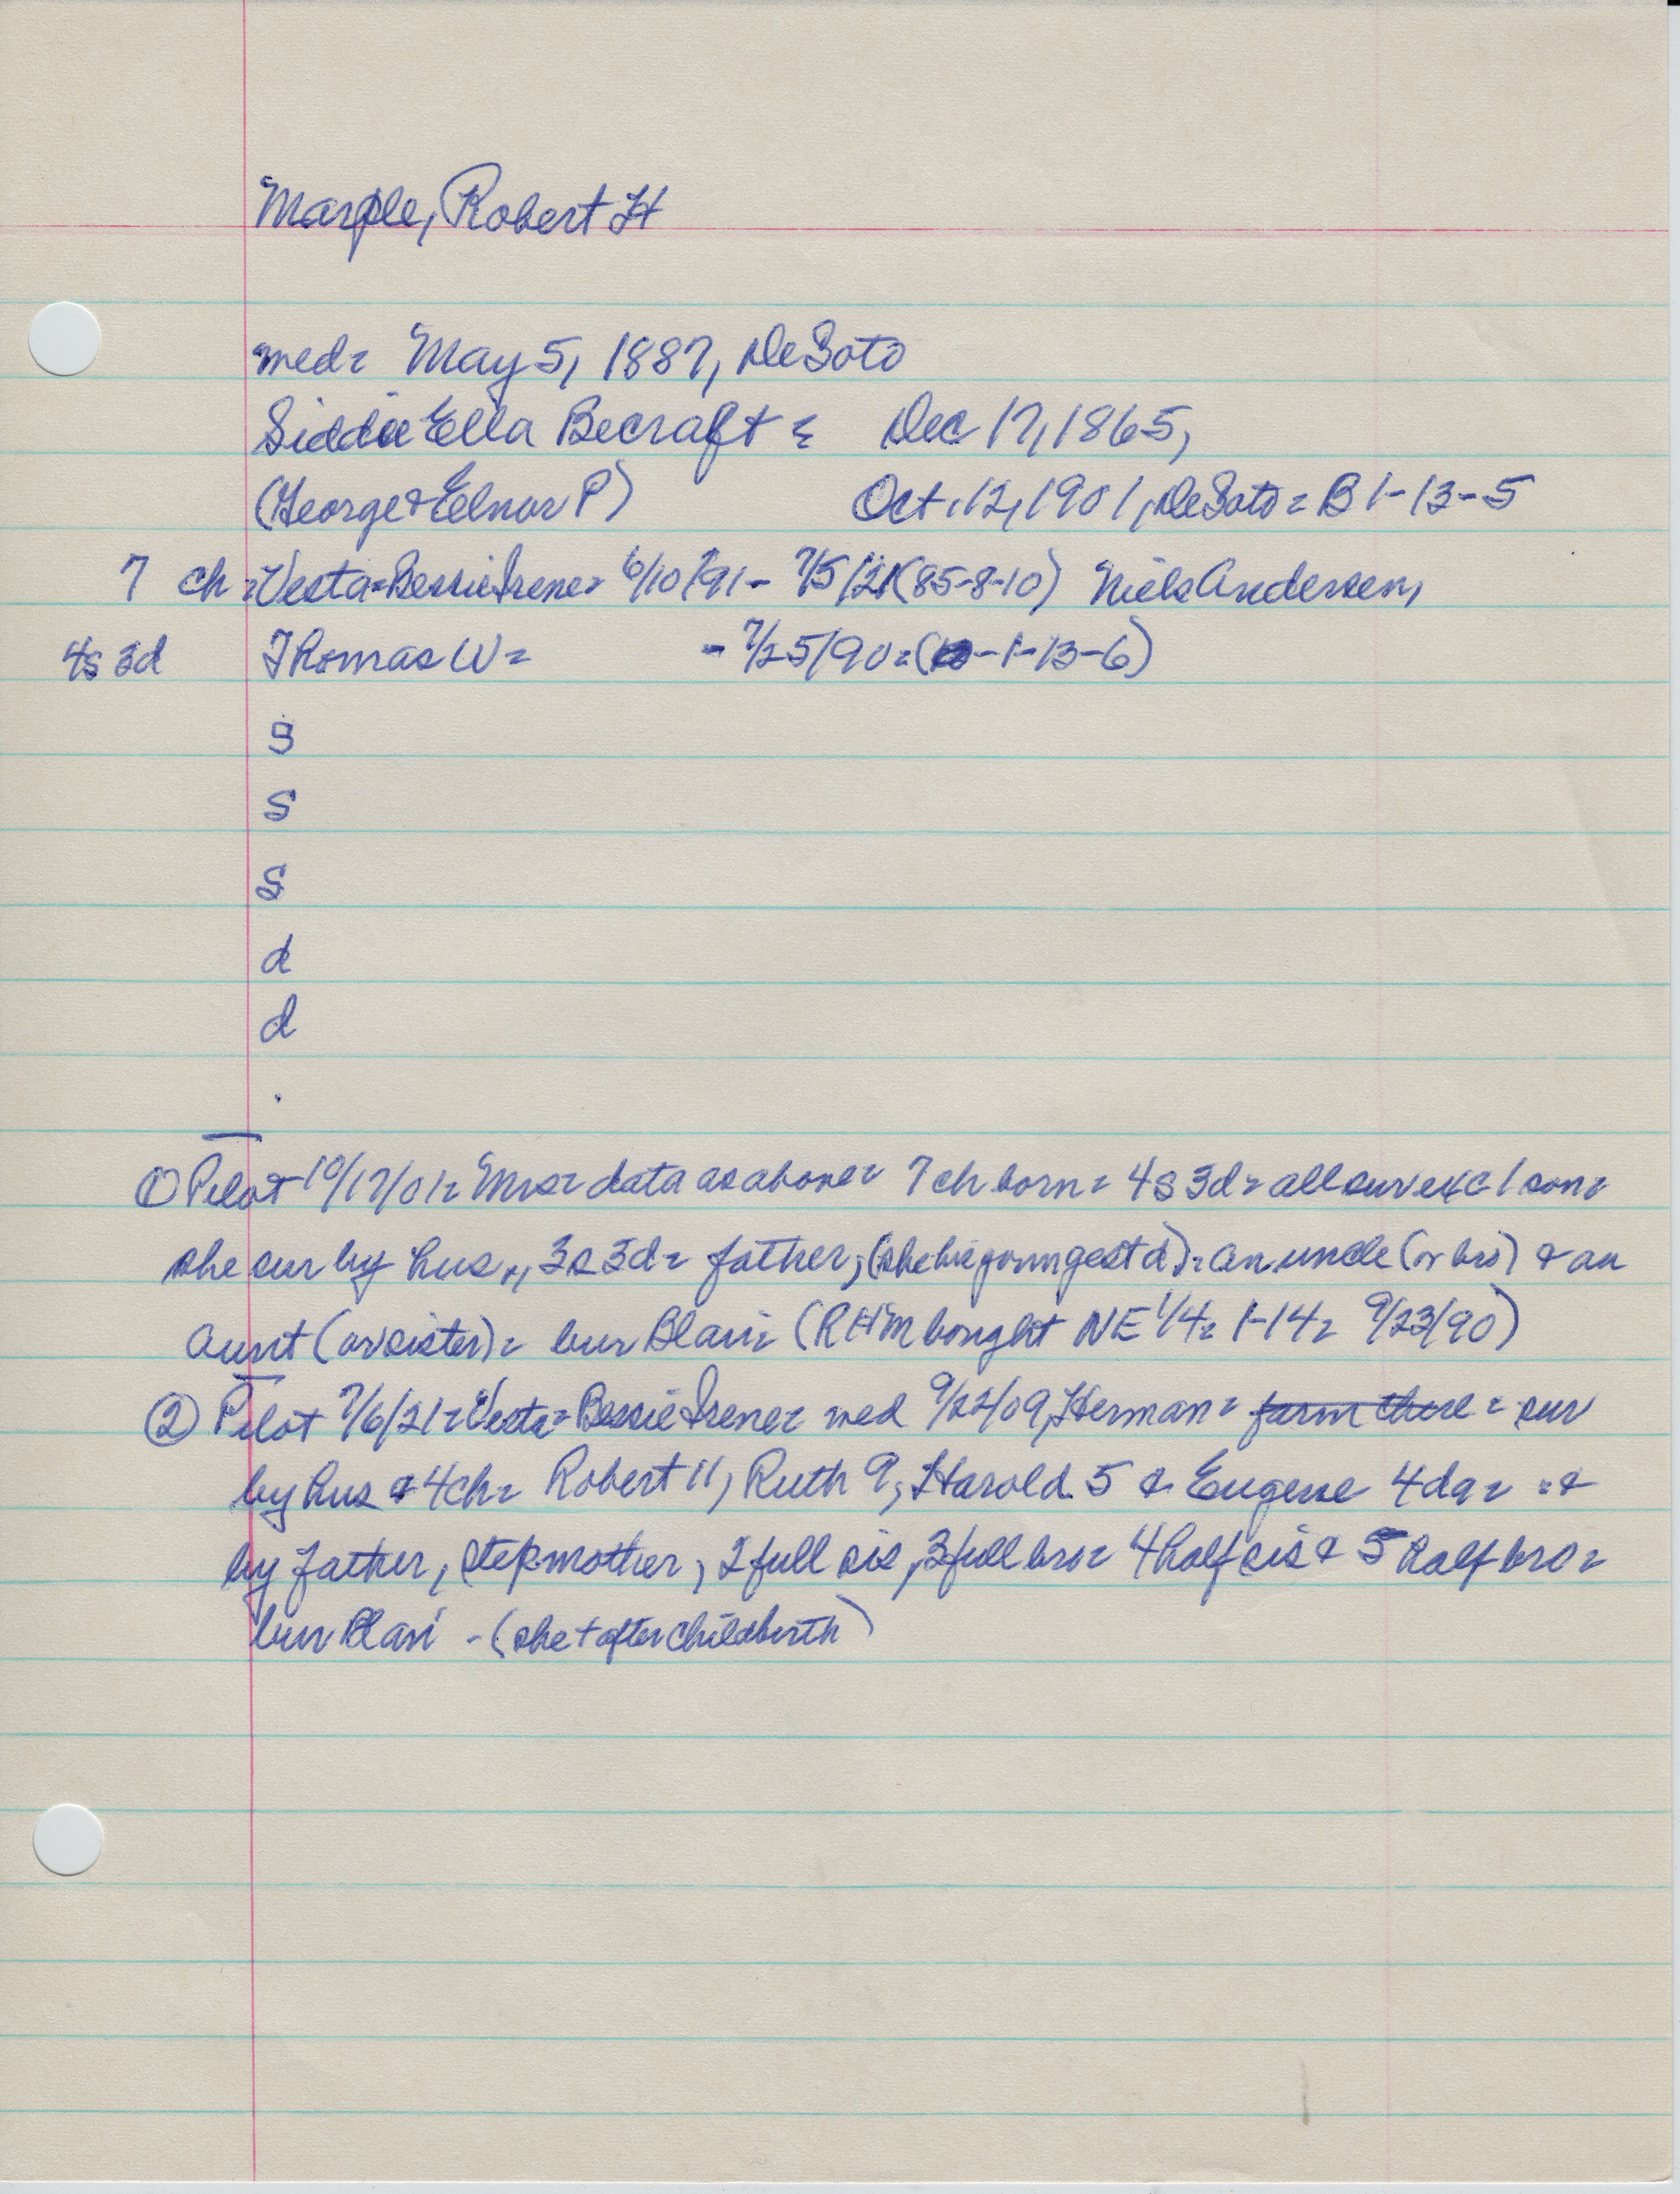 Marple, Robert H
wed= May 5, 1887, DeSoto
Siddie Ella Becraft = Dec 17, 1865,
(George & Eelnor P) Oct. 12, 1901, DeSoto = B 1-13-5
7 ch = Vesta=Bessie Irene= 6/10/91 - 7/5/21 (85-8-10) Niels Andersen,
4s 3d Thomas W= - 7/25/90 = ( -1-13-6)
s
s
s
d
d
① Pilot 10/17/01 = Mrs = data as above = 7 ch born = 4s 3d = all sur exc 1 son =
she sur by hus., 3s 3d = father, (she his youngest d) = an uncle (or bro) & an
aunt (or sister) = bur Blair = (RHM bought NE 1/4 = 1-14 = 9/23/90)
② Pilot 7/6/21 = Vesta = Bessie Irene = wed 9/22/09, Herman = farm there = sur
by hus & 4ch = Robert 11, Ruth 9, Harold 5 & Eugene 4da = = &
by father, stepmother, 2 full sis, 3 full bro = 4 half sis & 5 half bro =
bur Blair - (she + after childbirth)